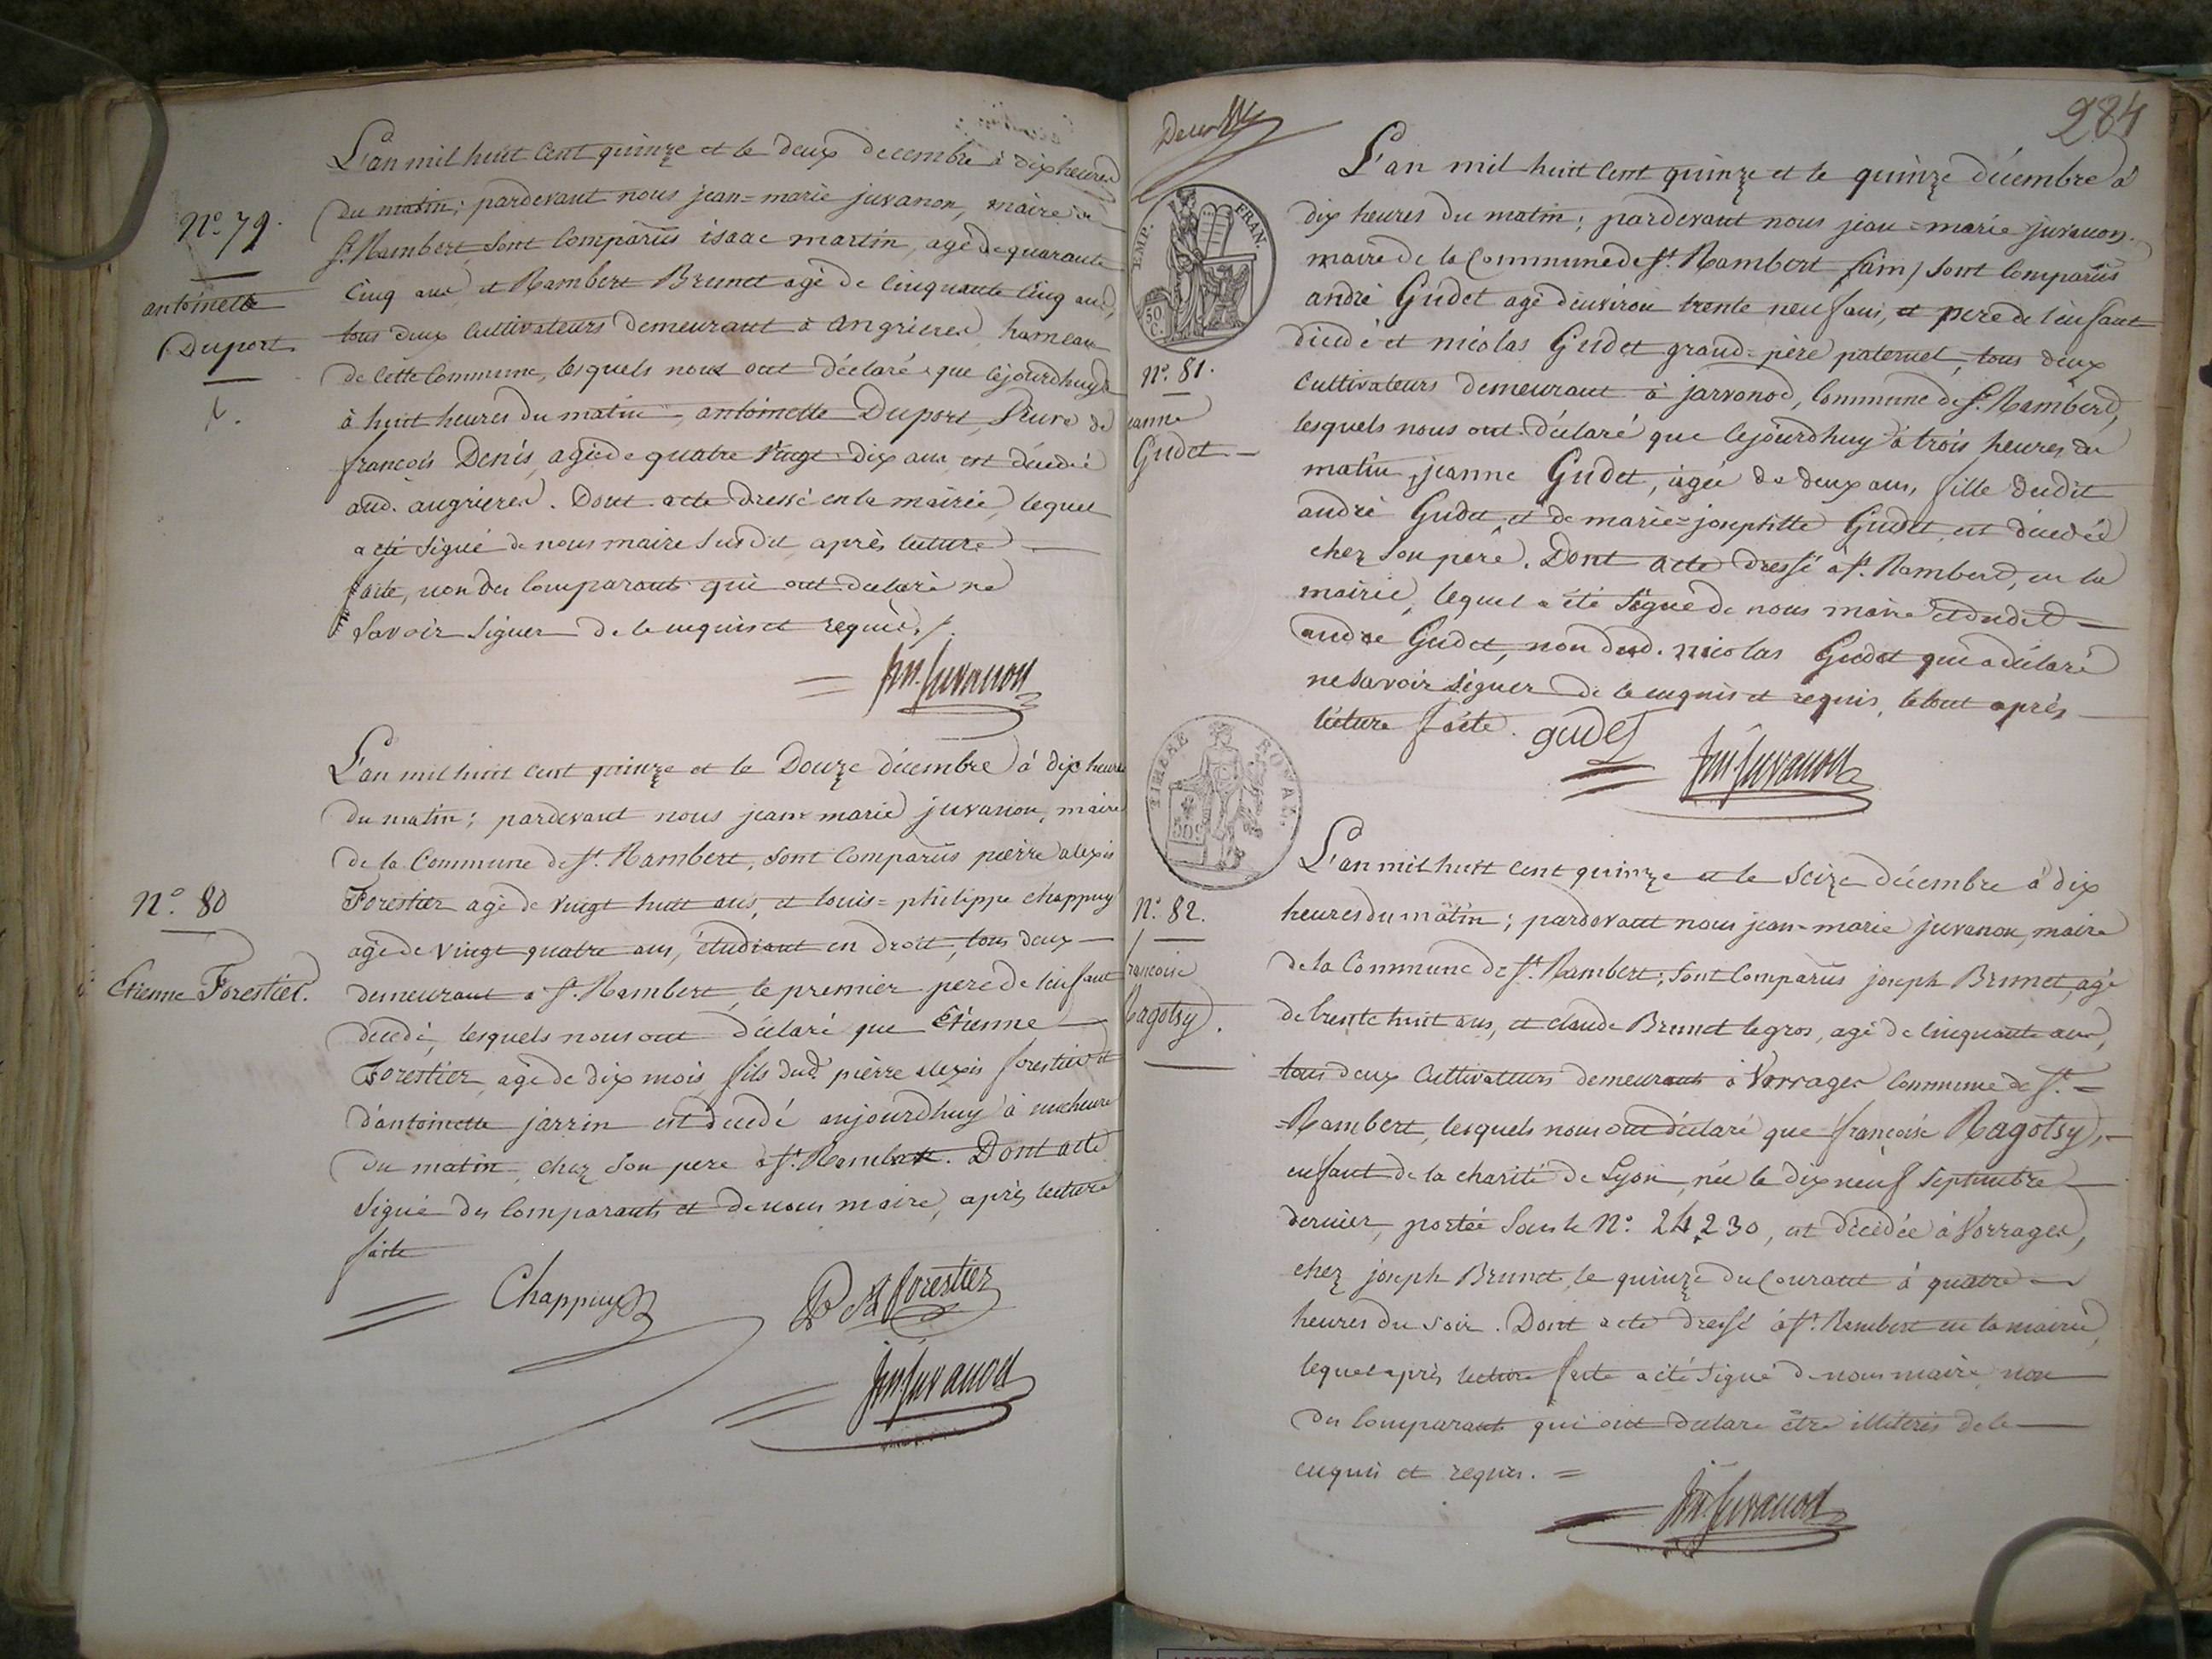 L'an mil huit cent quinze et le deux decembre à dix heures
du matin; pardevant nous jean=marie juvanon, maire de
St. Rambert, sont comparus isaac martin, agé de quarante
cinq ans et Rambert Brunet agé de cinquante cinq ans,
tous deux cultivateurs demeurant à angrieres, hameau
de cette commune, lesquels nous ont déclaré que cejourdhuy
à huit heures du matin, antoinette Duport, veuve de
françois Denis, agée de quatre vingt dix ans est décédée
aud. angrieres. Dont acte dressé en la mairie, lequel
a été signé de nous maire susdit après lecture
faite, non des comparants qui ont declaré ne
savoir signer de ce enquis et requis./.
Jm. Juvanon
N.o 79.
antoinette
Duport
L'an mil huit cent quinze et le Douze décembre à dix heures
du matin; pardevant nous jean marie juvanon, maire
de la Commune de St. Rambert, sont comparus pierre alexis
Forestier agé de vingt huit ans, et louis=philippe chappuy
agé de vingt quatre ans, étudiant en droit, tous deux
demeurant à St. Rambert, le premier pere de l'enfant
decedé, lesquels nous ont déclaré que Etienne
Forestier, agé de dix mois fils dud. pierre alexis forestier et
d'antoinette jarrin est decedé aujourdhuy à une heure
du matin, chez son pere à St. Rambert. Dont acte
signé des comparants et de nous maire, après lecture
faite
Chappuy
P Al forestier
Jm. Juvanon
N.o 80
Etienne Forestier.
284
Decès
EMP. FRAN.
50 C.
L'an mil huit cent quinze et le quinze décembre à
dix heures du matin; pardevant nous jean=marie juvanon
maire de la Commune de St. Rambert (ain) sont comparus
andré Gudet agé d'environ trente neuf ans, et pere de l'enfant
décédé et nicolas Gudet grand=père paternel, tous deux
cultivateurs demeurant à jarvonod, Commune de St. Rambert,
lesquels nous ont déclaré que cejourdhuy à trois heures du
matin, jeanne Gudet, agée de deux ans, fille dudit
andré Gudet et de marie=josephte Gudet est décédée
chez son père. Dont acte dressé à St. Rambert, en la
mairie, lequel a été signé de nous maire et dudit
andré Gudet, non dud. nicolas Gudet qui a déclaré
ne savoir signer de ce enquis et requis, le tout après
lecture faite.
gudet
Jm. Juvanon
N.o 81.
jeanne
Gudet
TIMBRE ROYAL.
L'an mil huit cent quinze et le seize décembre à dix
heures du matin; pardevant nous jean=marie juvanon, maire
de la Commune de St. Rambert; sont comparus joseph Brunet, agé
de trente huit ans, et claude Brunet legros, agé de cinquante ans,
tous deux cultivateurs demeurant à Vorrages commune de St.=
=Rambert, lesquels nous ont déclaré que françoise Ragotsy,
enfant de la charité de Lyon, née le dix neuf septembre
dernier, portée sous le N.o 24,230, est décédée à Vorrages,
chez joseph Brunet, le quinze du courant à quatre
heures du soir. Dont acte dressé à St. Rambert en la mairie,
lequel après lecture faite a été signé de nous maire non
des comparants qui ont declare être illiterés de ce
enquis et requis. =
Jm. Juvanon
N.o 82.
françoise
Ragotsy.